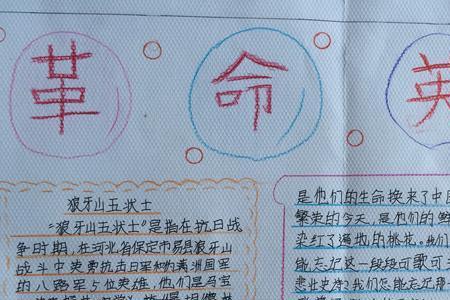 革命英
狼牙山五状士
"狼牙山五状士"是指在抗日战
争时期,在河北省保定市易县狼牙山
战斗中英勇抗击日军和伪满洲国军
的八路军5位英雄,他们是马宝
是他们的生命换来了中国
繁荣的今天,是他们的鲜
染红了遍地的桃花。我们
能忘记这一段段可歌可
我们怎能忘记那